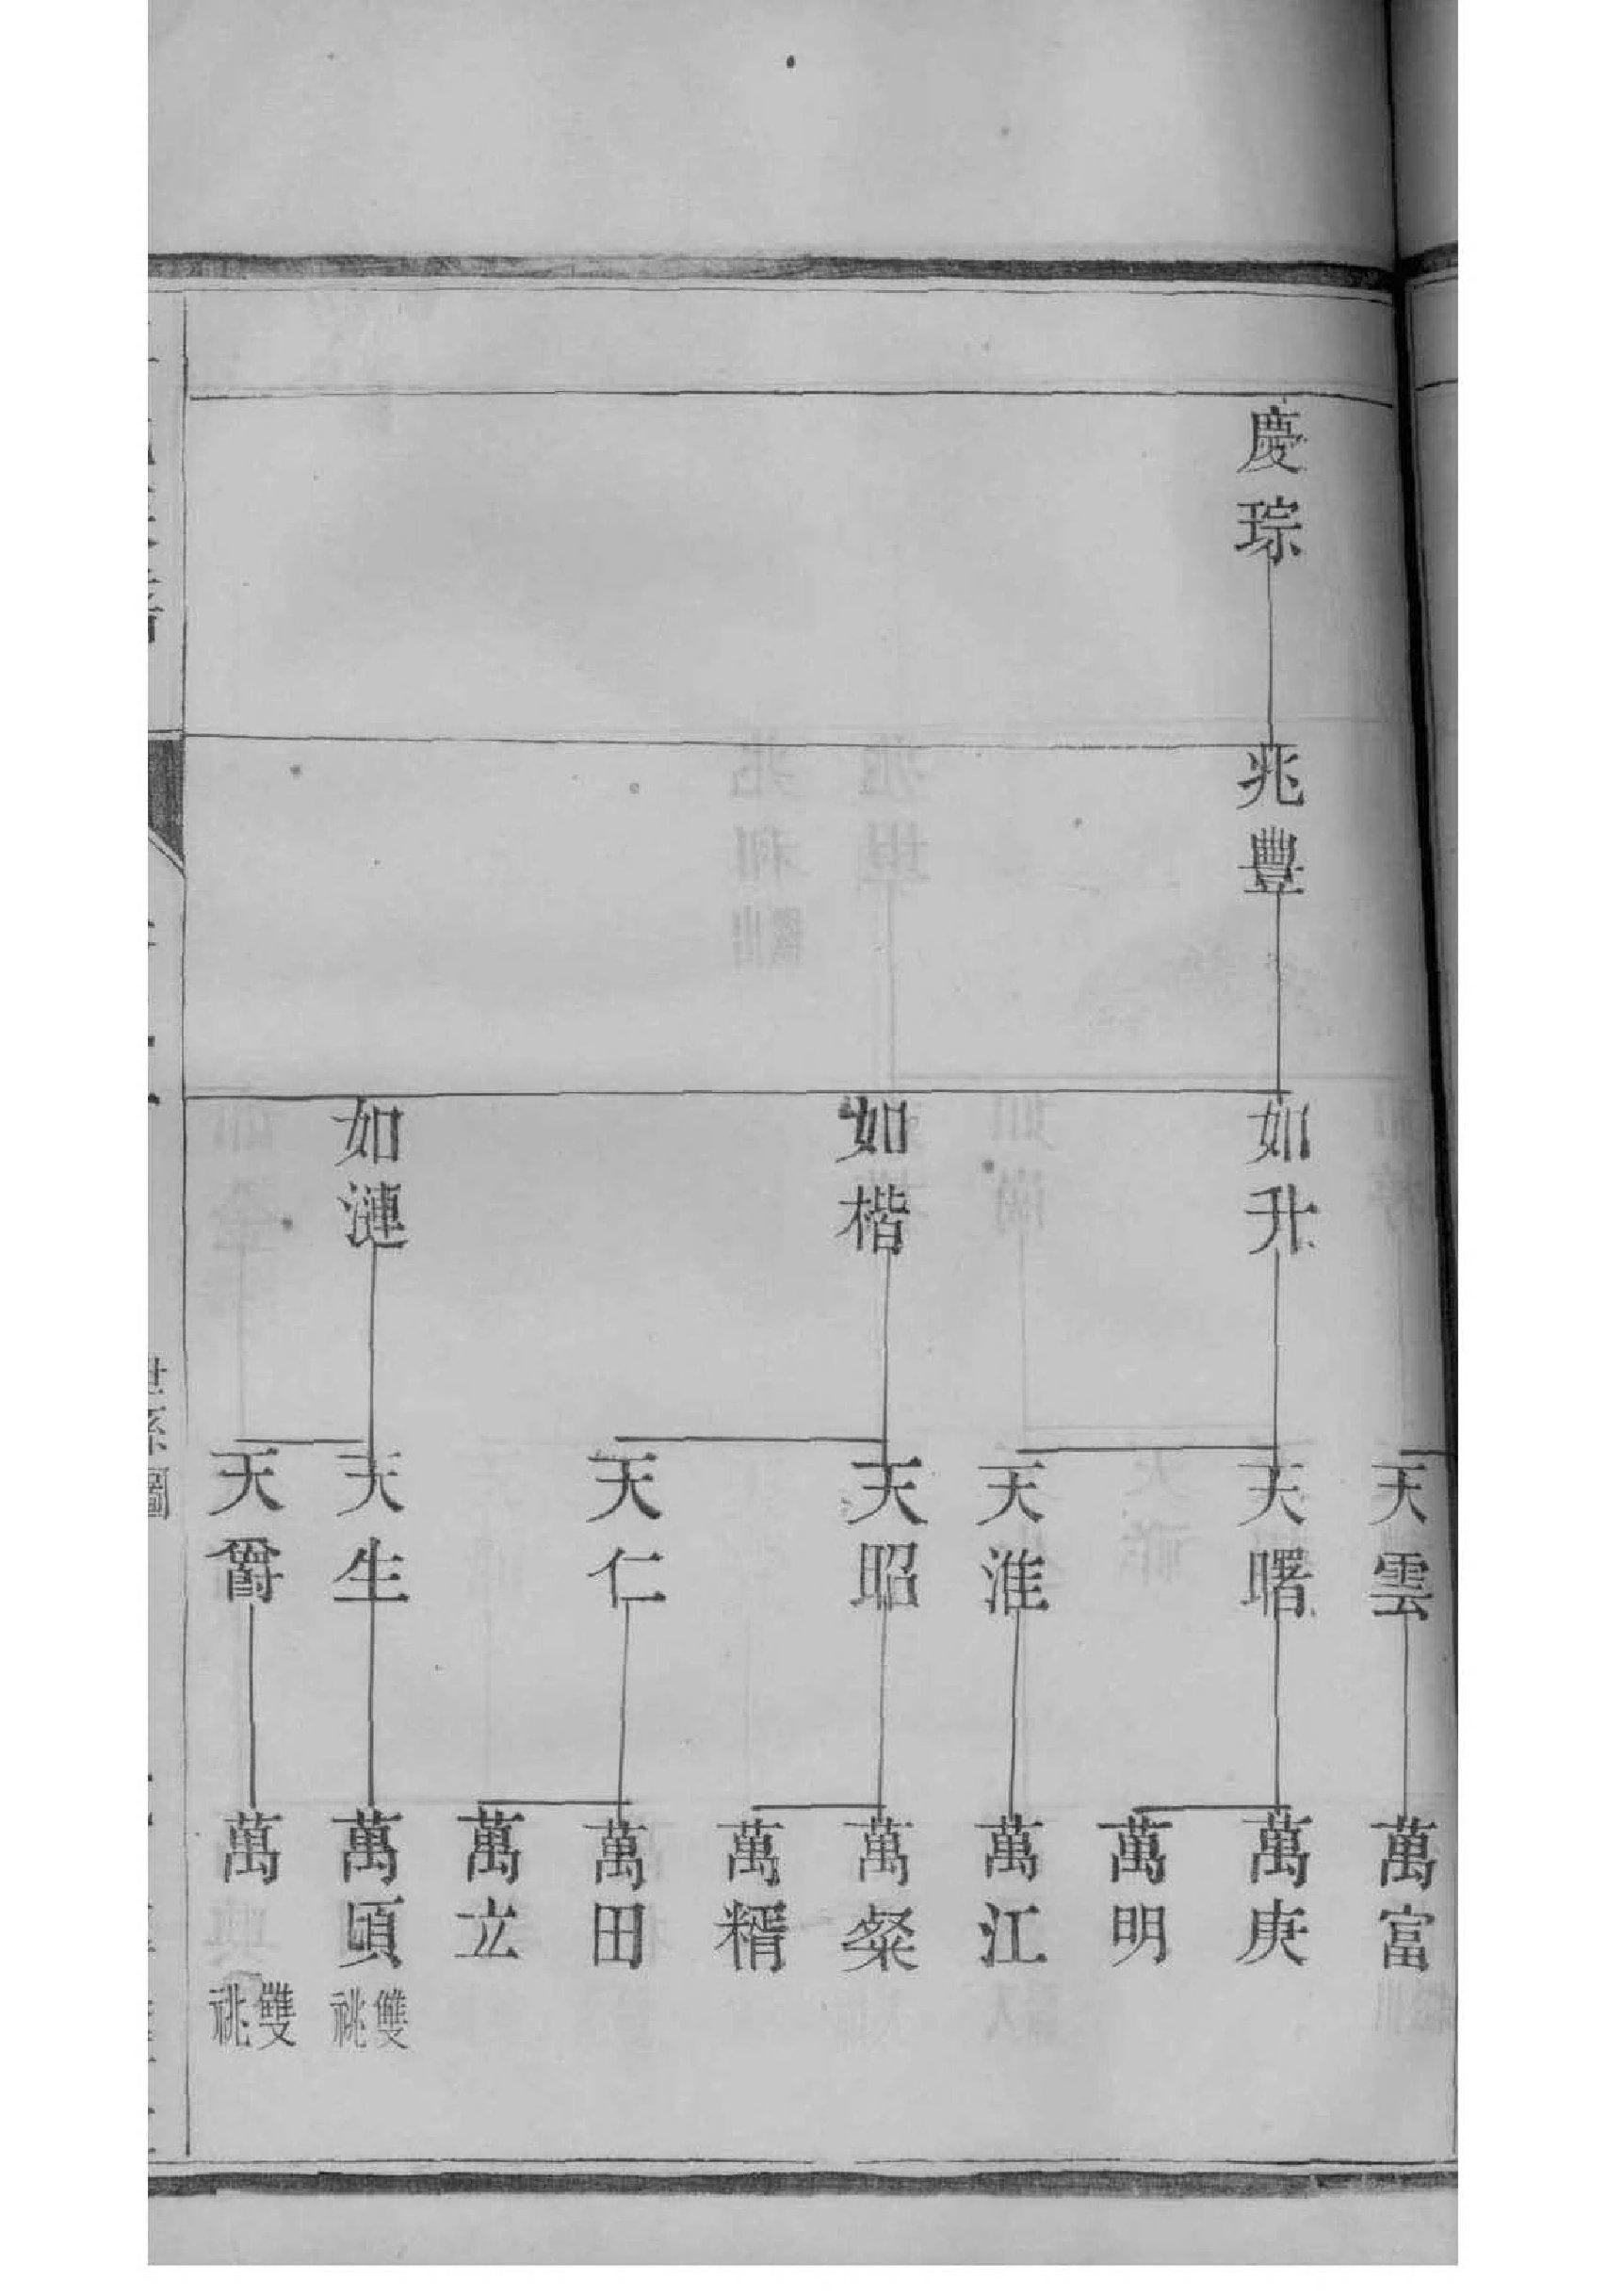 慶琮
兆豐
如升
如楷
如漣
天雲
天曙
天淮
天昭
天仁
天生
天爵
萬富
萬庚
萬明
萬江
萬粲
萬糈
萬田
萬立
萬頃 雙祧
萬 雙祧
世系圖